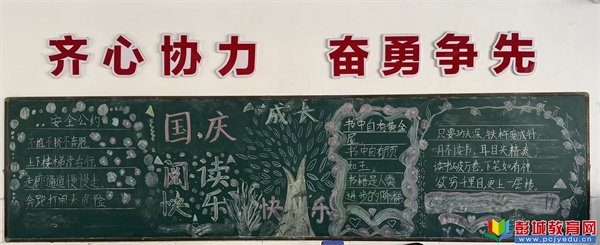 齐心协力 奋勇争先
安全公约
不推不挤不奔跑
上下楼梯靠右行
走廊通道慢慢走
奔跑打闹太危险
国庆
阅读
快乐
成长
快乐
书中自有黄金
屋
书中自有颜
如玉
书籍是人类
进步的阶梯
只要功夫深，铁杵磨成针。
一日不读书，耳目失精爽。
读书破万卷，下笔如有神
欲穷千里目，更上一层楼。
彭城教育网
www.pcjyedu.cn